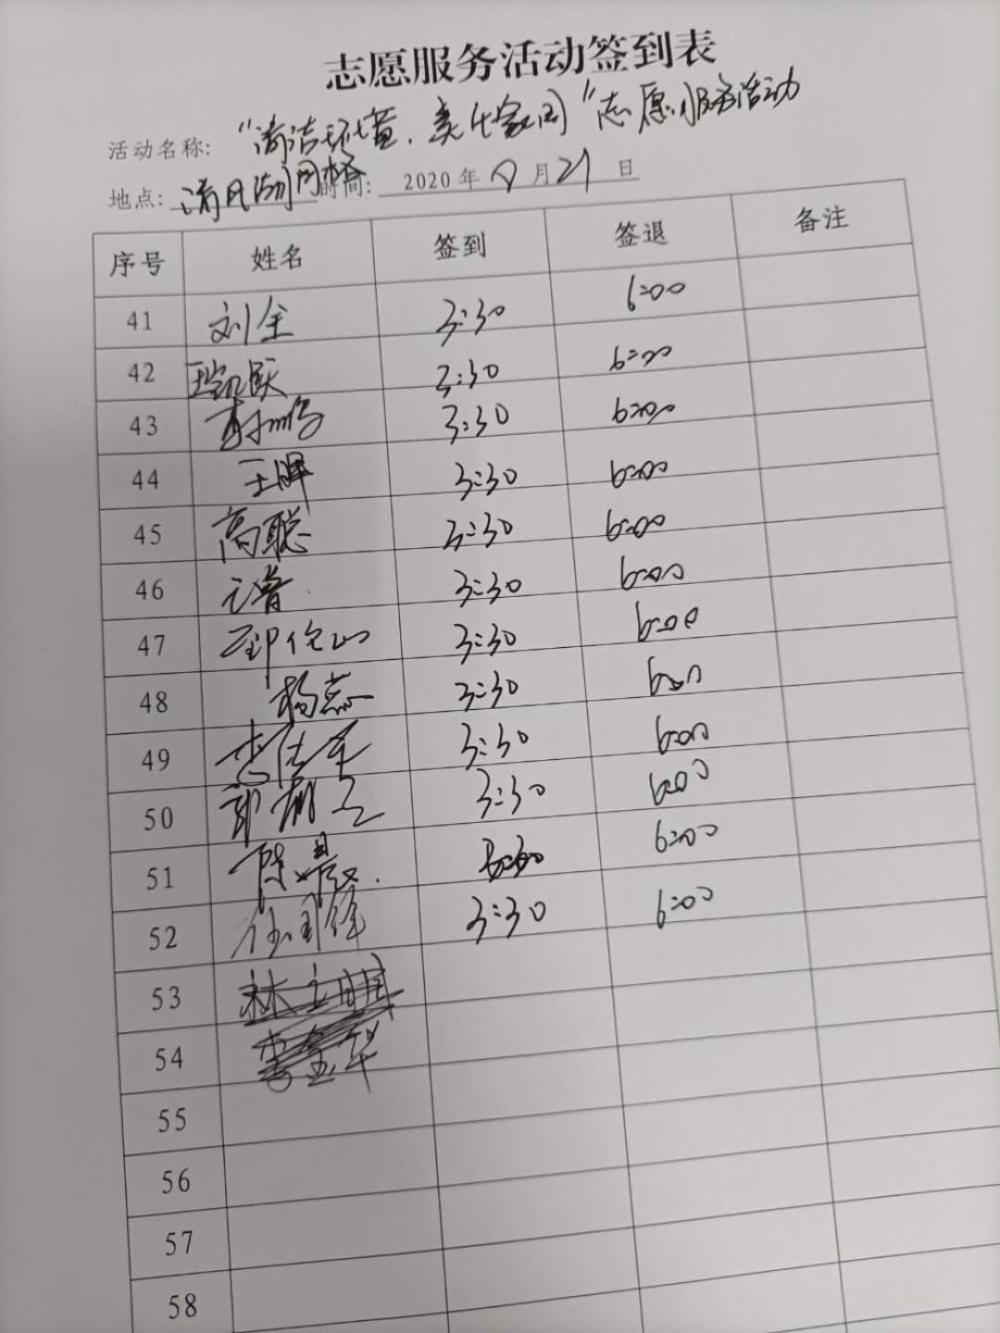 志愿服务活动签到表
活动名称: "清洁环境,美化家园"志愿服务活动
地点: 清风湖网格 时间: 2020 年 月 21 日
序号 姓名 签到 签退 备注
41 刘全 3:30 6:00
42 3:30 6:00
43 3:30 6:00
44 王晖 3:30 6:00
45 高聪 3:30 6:00
46 3:30 6:00
47 3:30 6:00
48 杨志 3:30 6:00
49 3:30 6:00
50 3:30 6:00
51 陈 3:30 6:00
52 3:30 6:00
53 林立明
54 李金华
55
56
57
58